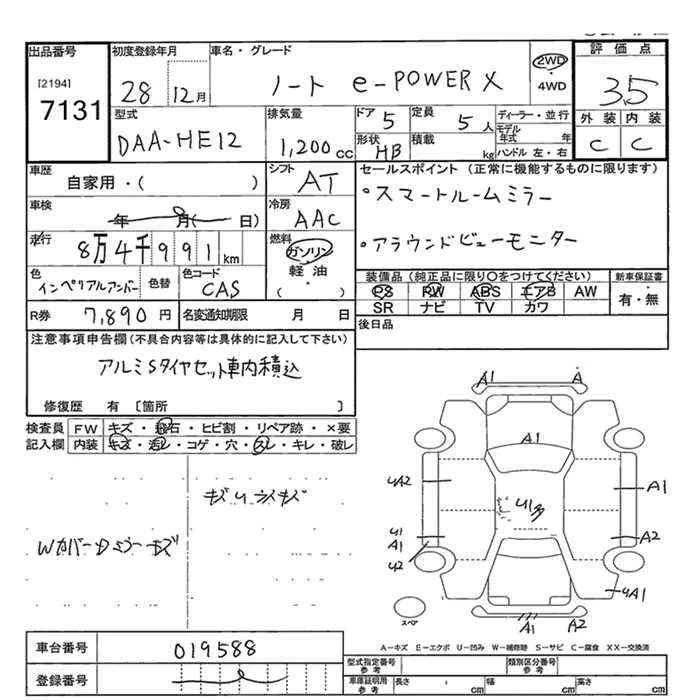 出品番号 初度登録年月 車名・グレード 評価点
[2194]
7131
28 12月 ノート e-POWER X 2WD・4WD 3.5
型式 排気量 ドア 5 定員 5人 ディーラー・並行 外装 内装
モデル年式 年
DAA-HE12 1,200cc 形状 HB 積載 kg ハンドル 左・右 C C
車歴 シフト セールスポイント (正常に機能するものに限ります)
自家用・( ) AT ・スマートルームミラー
車検 冷房
年 月( 日) AAC
・アラウンドビューモニター
走行 燃料
8万4千991km ガソリン
軽油
・( )
色 色替 色コード 装備品 (純正品に限り○をつけてください) 新車保証書
インペリアルアンバー CAS PS PW ABS エアB AW
SR ナビ TV カワ 有・無
R券 7,890円 名変通知期限 月 日 後日品
注意事項申告欄(不具合内容等は具体的に記入して下さい)
アルミSタイヤセット車内積込
修復歴 有 [箇所 ]
検査員 FW キズ・飛石・ヒビ割・リペア跡・×要
記入欄 内装 キズ・汚レ・コゲ・穴・スレ・キレ・破レ
Wカバー Dミラーキズ
A1 A
A1
UA2 A1
U1
A1 A2
U2
UA1
スペア A1 A2
A-キズ E-エクボ U-凹み W-補修跡 S-サビ C-腐食 XX-交換済
車台番号 019588
登録番号
型式指定番号 参考 類別区分番号 参考
車庫証明用 参考 長さ cm 幅 cm 高さ cm